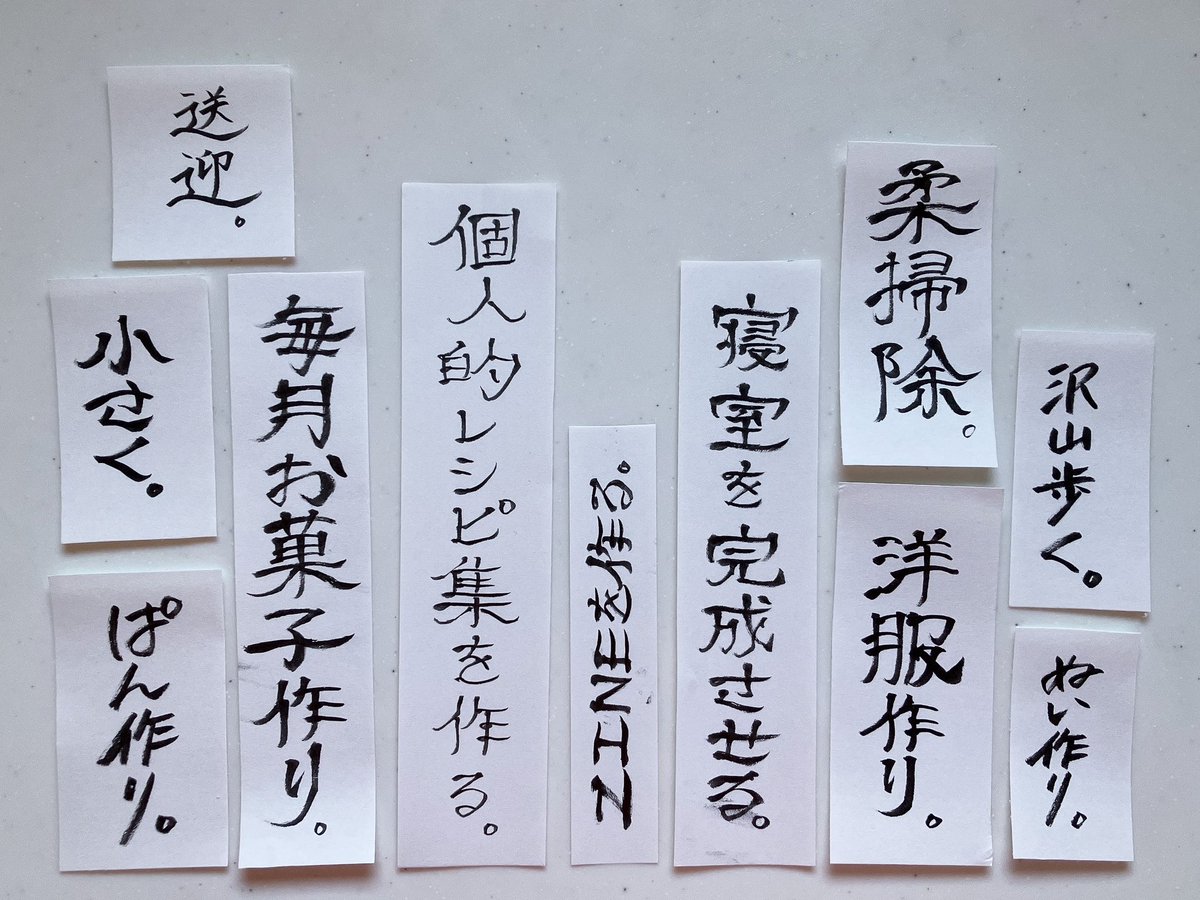 柔掃除。
沢山歩く。
洋服作り。
ぬい作り。
寝室を完成させる。
ZINEを作る。
個人的レシピ集を作る。
毎月お菓子作り。
送迎。
小さく。
ぱん作り。